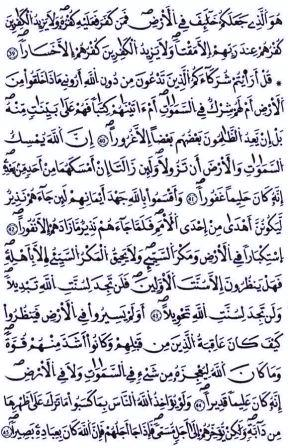 هُوَ ٱلَّذِي جَعَلَكُمْ خَلَٰٓئِفَ فِي ٱلْأَرْضِ فَمَن كَفَرَ فَعَلَيْهِ كُفْرُهُۥ وَلَا يَزِيدُ ٱلْكَٰفِرِينَ
كُفْرُهُمْ عِندَ رَبِّهِمْ إِلَّا مَقْتًا وَلَا يَزِيدُ ٱلْكَٰفِرِينَ كُفْرُهُمْ إِلَّا خَسَارًا
* قُلْ أَرَٰيْتُمْ شُرَكَآءَكُمُ ٱلَّذِينَ تَدْعُونَ مِن دُونِ ٱللَّهِ أَرُونِي مَاذَا خَلَقُوا۟ مِنَ
ٱلْأَرْضِ أَمْ لَهُمْ شِرْكٌ فِي ٱلسَّمَٰوَٰتِ أَمْ ءَاتَيْنَٰهُمْ كِتَٰبًا فَهُمْ عَلَىٰ بَيِّنَٰتٍ مِّنْهُ
بَلْ إِنْ يَعِدُ ٱلظَّٰلِمُونَ بَعْضُهُم بَعْضًا إِلَّا غُرُورًا إِنَّ ٱللَّهَ يُمْسِكُ
ٱلسَّمَٰوَٰتِ وَٱلْأَرْضَ أَن تَزُولَا وَلَئِن زَالَتَا إِنْ أَمْسَكَهُمَا مِنْ أَحَدٍ مِّنْ بَعْدِهِ
إِنَّهُۥ كَانَ حَلِيمًا غَفُورًا ٤١ وَأَقْسَمُوا۟ بِٱللَّهِ جَهْدَ أَيْمَٰنِهِمْ لَئِن جَآءَهُمْ نَذِيرٌ
لَّيَكُونُنَّ أَهْدَىٰ مِنْ إِحْدَى ٱلْأُمَمِ فَلَمَّا جَآءَهُمْ نَذِيرٌ مَّا زَادَهُمْ إِلَّا نُفُورًا ٤٢
ٱسْتِكْبَارًا فِي ٱلْأَرْضِ وَمَكْرَ ٱلسَّيِّئِ وَلَا يَحِيقُ ٱلْمَكْرُ ٱلسَّيِّئُ إِلَّا بِأَهْلِهِ
فَهَلْ يَنظُرُونَ إِلَّا سُنَّتَ ٱلْأَوَّلِينَ فَلَن تَجِدَ لِسُنَّتِ ٱللَّهِ تَبْدِيلًا
وَلَن تَجِدَ لِسُنَّتِ ٱللَّهِ تَحْوِيلًا أَوَلَمْ يَسِيرُوا۟ فِي ٱلْأَرْضِ فَيَنظُرُوا۟
كَيْفَ كَانَ عَٰقِبَةُ ٱلَّذِينَ مِن قَبْلِهِمْ وَكَانُوا۟ أَشَدَّ مِنْهُمْ قُوَّةً
وَمَا كَانَ ٱللَّهُ لِيُعْجِزَهُۥ مِن شَيْءٍ فِي ٱلسَّمَٰوَٰتِ وَلَا فِي ٱلْأَرْضِ
إِنَّهُۥ كَانَ عَلِيمًا قَدِيرًا وَلَوْ يُؤَاخِذُ ٱللَّهُ ٱلنَّاسَ بِمَا كَسَبُوا۟ مَا تَرَكَ عَلَىٰ ظَهْرِهَا
مِن دَآبَّةٍ وَلَٰكِن يُؤَخِّرُهُمْ إِلَىٰ أَجَلٍ مُّسَمًّى فَإِذَا جَآءَ اجَلُهُمْ فَإِنَّ ٱللَّهَ كَانَ بِعِبَادِهِ بَصِيرًا